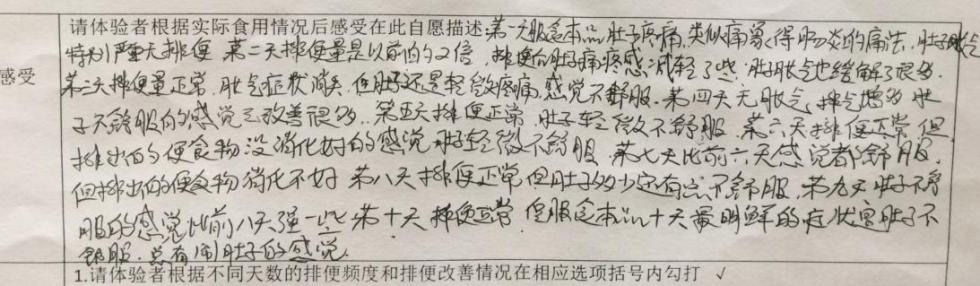 请体验者根据实际食用情况后感受在此自愿描述:第一天服食本品肚子疼痛,类似痛得肠炎的痛法,肚子胀气
特别严重大排便 第二天排便量是以前的2倍,排便台肚子痛疼感减轻了些 肚子胀气也缓解了很多.
感受
第三天排便量正常,肚气症状消失,但肚子还是轻微疼痛,感觉不舒服.第四天无胀气,排气增多 肚
子不舒服的感觉已改善很多.第五天排便正常,肚子轻微不舒服.第六天排便正常但
排出的便食物没消化好的感觉 肚子轻微不舒服 第七天比前六天感觉都舒服.
但排出的便食物消化不好 第八天排便正常但肚子多少还有点不舒服 第九天肚子不舒
服的感觉比前八天强一些 第十天排便正常 但服食本品十天最明鲜的症状是肚子不
舒服.总有闹肚子的感觉.
1.请体验者根据不同天数的排便频度和排便改善情况在相应选项括号内勾打 √